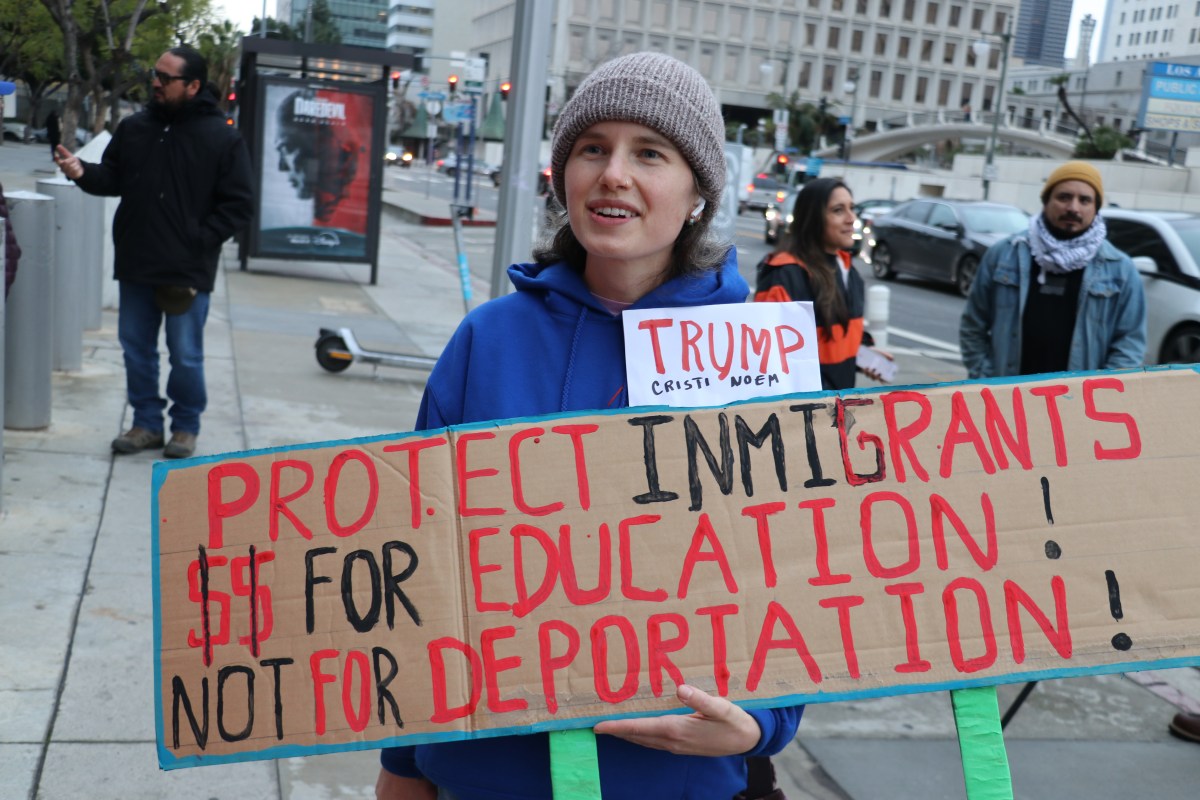 DAREDEVIL
LOS
PUBLIC
TRUMP
CRISTI NOEM
PROTECT INMIGRANTS
$$ FOR EDUCATION!
NOT FOR DEPORTATION!